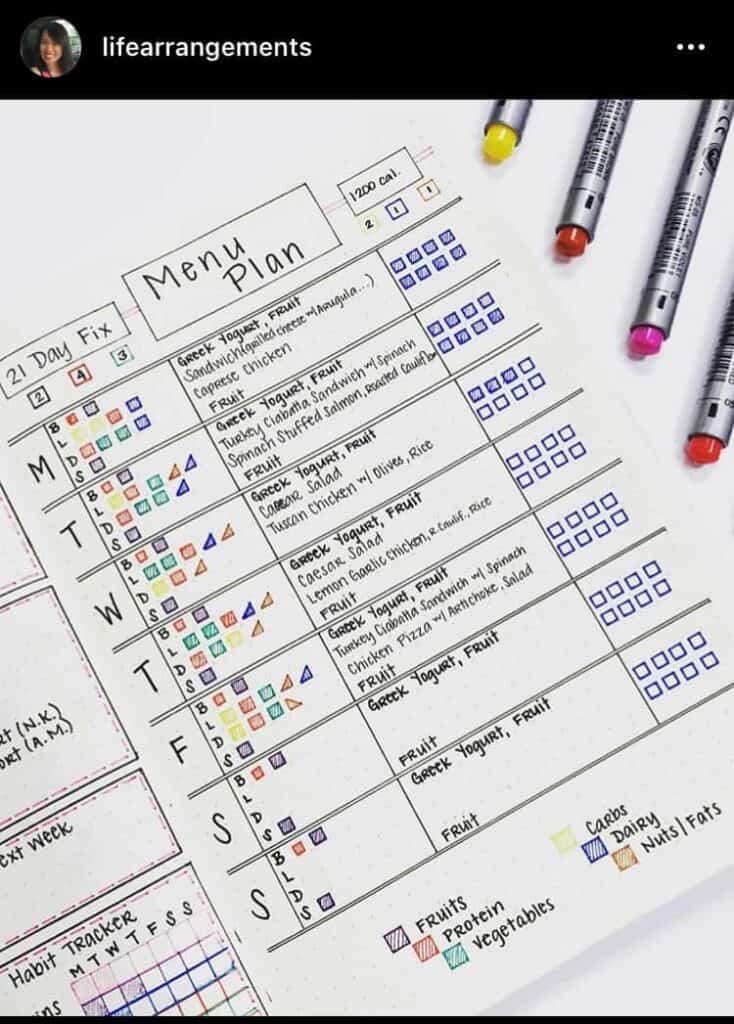 lifearrangements
Menu
Plan
1200 cal.
2 1 1
21 Day Fix
2 4 3
M
B
L
D
S
Greek Yogurt, Fruit
Sandwich (grilled cheese w/ Arugula...)
Caprese Chicken
Fruit
T
B
L
D
S
Greek Yogurt, Fruit
Turkey Ciabatta Sandwich w/ Spinach
Spinach Stuffed Salmon, Roasted Cauliflower
Fruit
W
B
L
D
S
Greek Yogurt, Fruit
Caesar Salad
Tuscan Chicken w/ Olives, Rice
T
B
L
D
S
Greek Yogurt, Fruit
Caesar Salad
Lemon Garlic Chicken, R. Caulif., Rice
Fruit
F
B
L
D
S
Greek Yogurt, Fruit
Turkey Ciabatta Sandwich w/ Spinach
Chicken Pizza w/ Artichoke, Salad
Fruit
S
B
L
D
S
Greek Yogurt, Fruit
Fruit
S
B
L
D
S
Greek Yogurt, Fruit
Fruit
Fruits
Protein
Vegetables
Carbs
Dairy
Nuts/Fats
(N.K.)
(A.M.)
Week
Habit Tracker
M T W T F S S